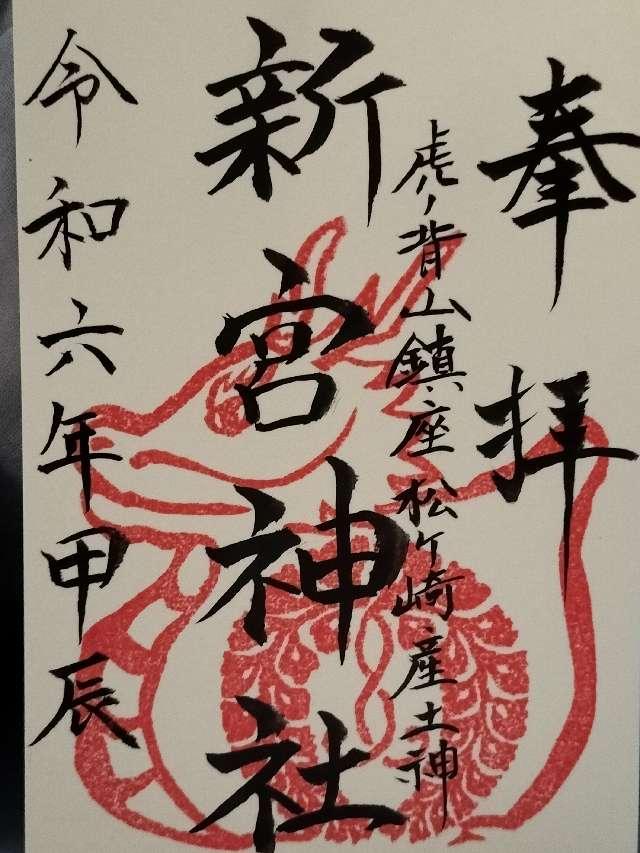 奉拝
虎ノ背山鎮座 松ケ崎産土神
新宮神社
令和六年甲辰